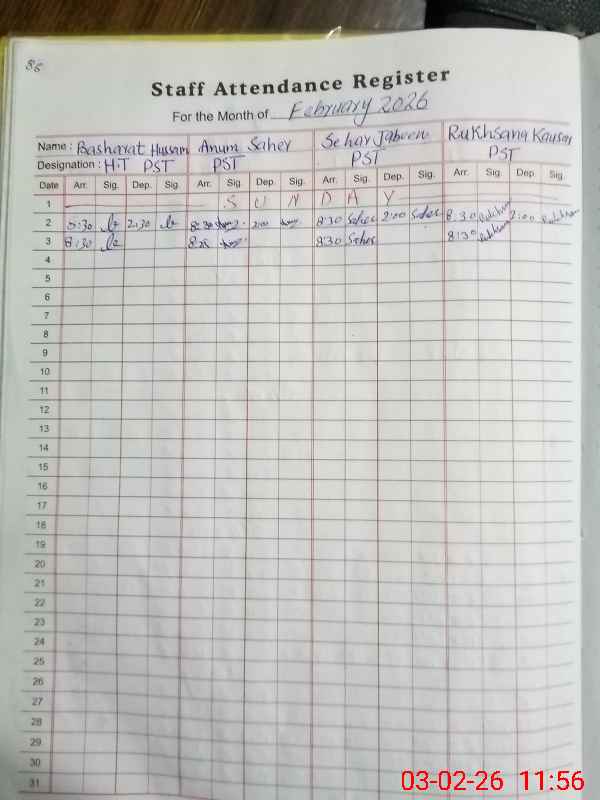 86
Staff Attendance Register
For the Month of February 2026
Name : Basharat Hussain Anum Saher Sehar Jabeen Rukhsana Kausar
Designation : H.T PST PST PST PST
Date Arr. Sig. Dep. Sig. Arr. Sig. Dep. Sig. Arr. Sig. Dep. Sig. Arr. Sig. Dep. Sig.
1 S U N D A Y
2 8:30 2:30 8:30 2:00 8:30 Seher 2:00 Seher 8:30 2:00
3 8:30 8:25 8:30 Seher 8:30
4
5
6
7
8
9
10
11
12
13
14
15
16
17
18
19
20
21
22
23
24
25
26
27
28
29
30
31
03-02-26 11:56